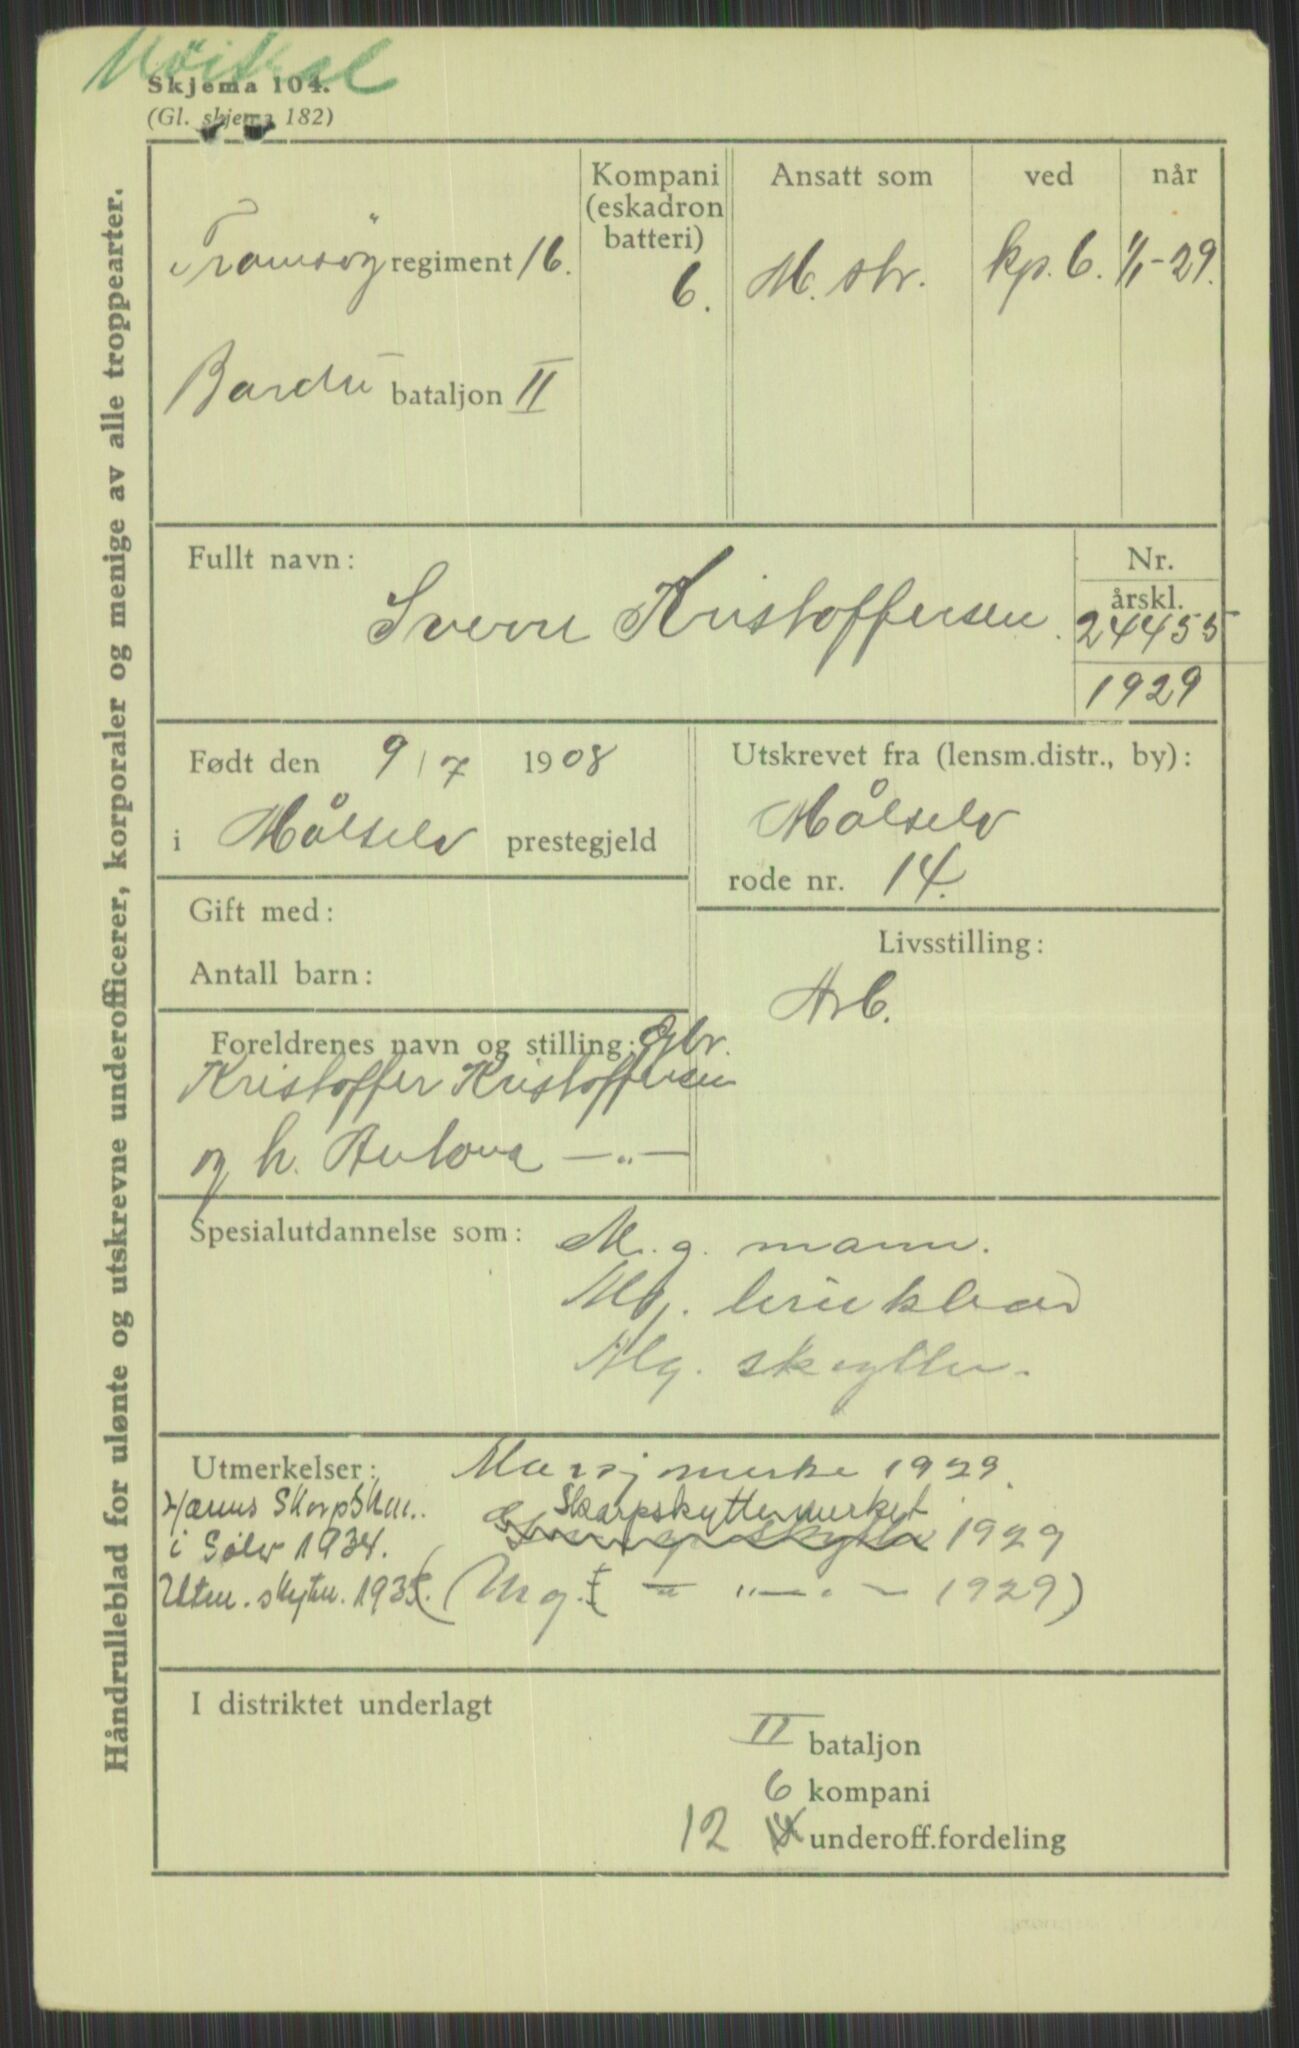 Skjema 104.
(Gl. skjema 182)
Håndrulleblad for ulønte og utskrevne underofficerer, korporaler og menige av alle troppearter.
Kompani
(eskadron
batteri)
Ansatt som
ved
når
regiment 16.
6.
M. str.
kp. 6.
1/1-29.
Bardu bataljon II
Fullt navn:
Sverre Kristoffersen
Nr.
årskl.
24455
1929
Født den 9/7 1908
i Målselv prestegjeld
Utskrevet fra (lensm.distr., by):
Målselv
rode nr. 14.
Gift med:
Antall barn:
Livsstilling:
Arb.
Foreldrenes navn og stilling: Gbr.
Kristoffer Kristoffersen
og h. Antona — „ —
Spesialutdannelse som:
M. g. mann.
Mg.
Mg. skytter.
Utmerkelser: Marsjmerke 1929.
Skarpskyttermerket 1929
i Sølv 1934.
1929)
I distriktet underlagt
II bataljon
6 kompani
12 underoff.fordeling